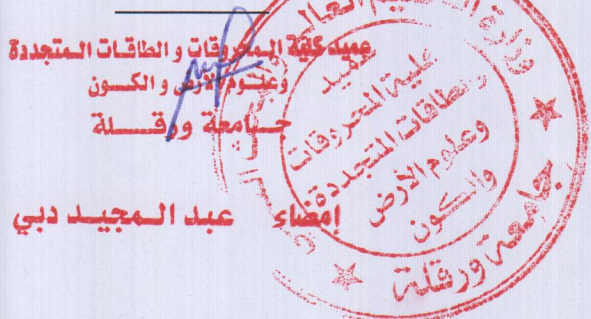 عميد كلية المحروقات و الطاقات المتجددة
وعلوم الأرض و الكون
جامعة ورقلة
إمضاء عبد المجيد دبي
وزارة التعليم العالي
عميد
كلية المحروقات
والطاقات المتجددة
وعلوم الأرض
والكون
جامعة ورقلة